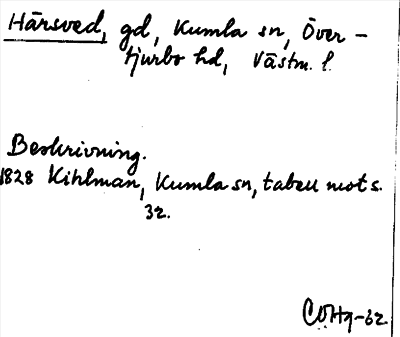 Härsved, gd, Kumla sn, Över-
tjurbo hd, Västm. l.
Beskrivning.
1828 Kihlman, Kumla sn, tabell mot s.
32.